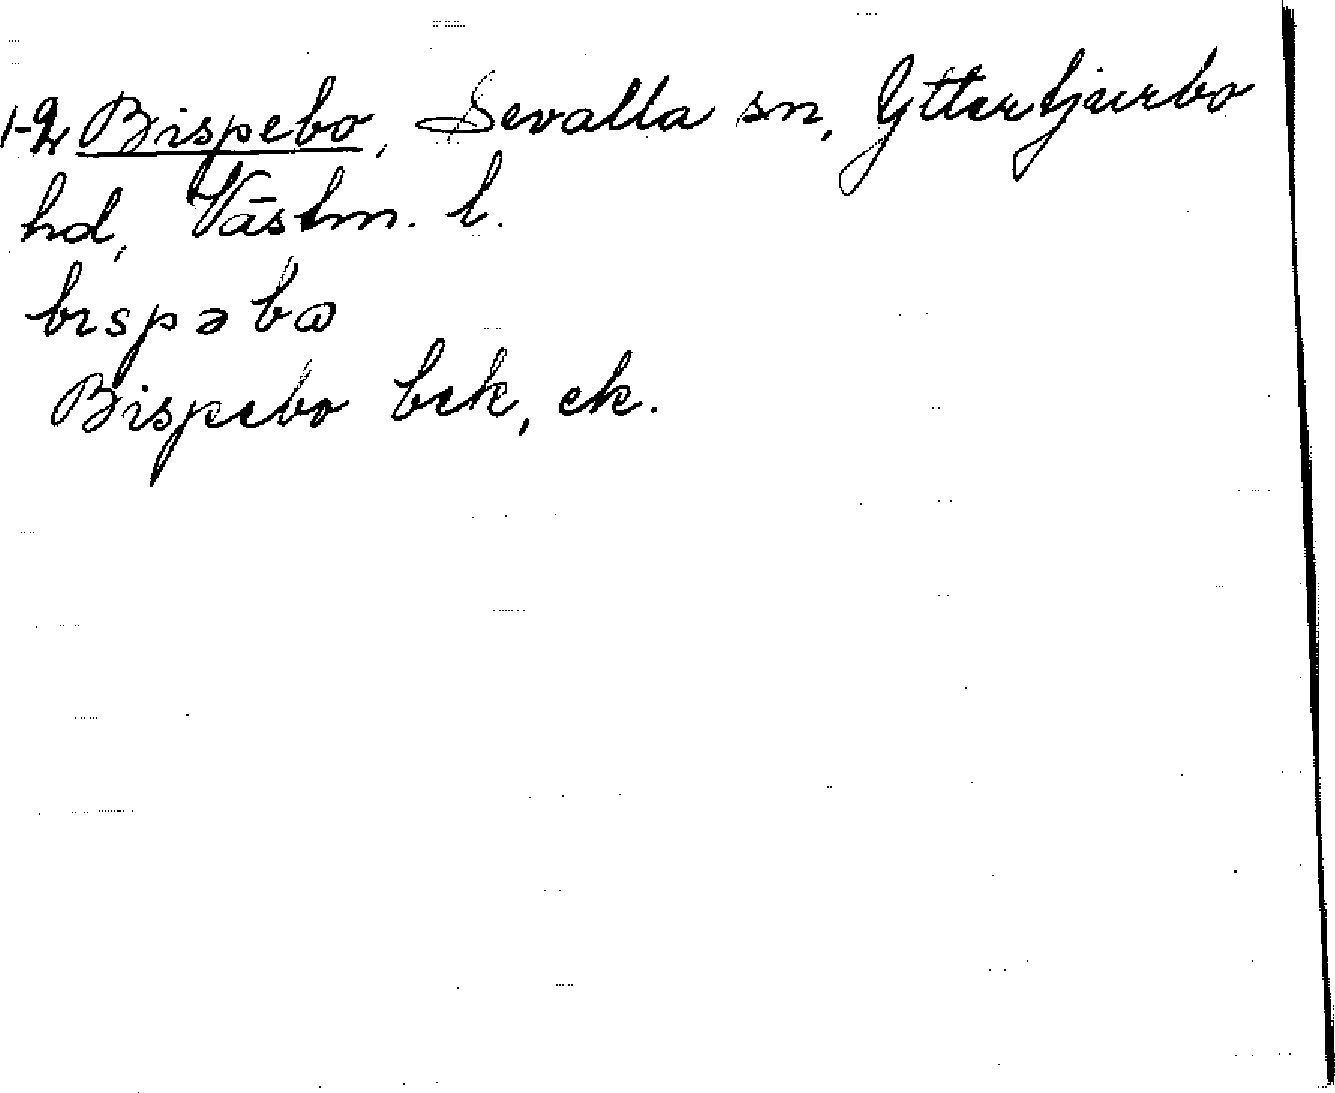 1-2 Bispebo, Sevalla sn, Yttertjurbo
hd, Västm. l.
bɪspəbɷ
Bispebo bek, ek.